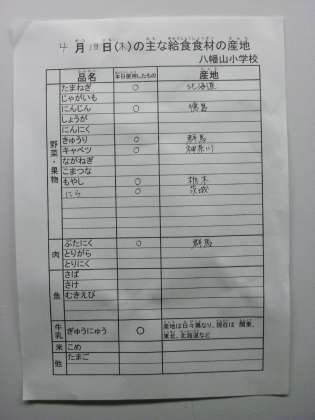 4月 日(木)の主な給食食材の産地
八幡山小学校
品名 本日使用したもの 産地
野菜・果物
たまねぎ ○ 北海道
じゃがいも
にんじん ○ 徳島
しょうが
にんにく
きゅうり ○ 群馬
キャベツ ○ 神奈川
ながねぎ
こまつな
もやし ○ 栃木
にら ○ 茨城
肉
ぶたにく ○ 群馬
とりがら
とりにく
魚
さば
さけ
むきえび
牛乳 ぎゅうにゅう ○ 産地は日々異なり、現在は 関東、
東北、北海道など
米 こめ
他 たまご